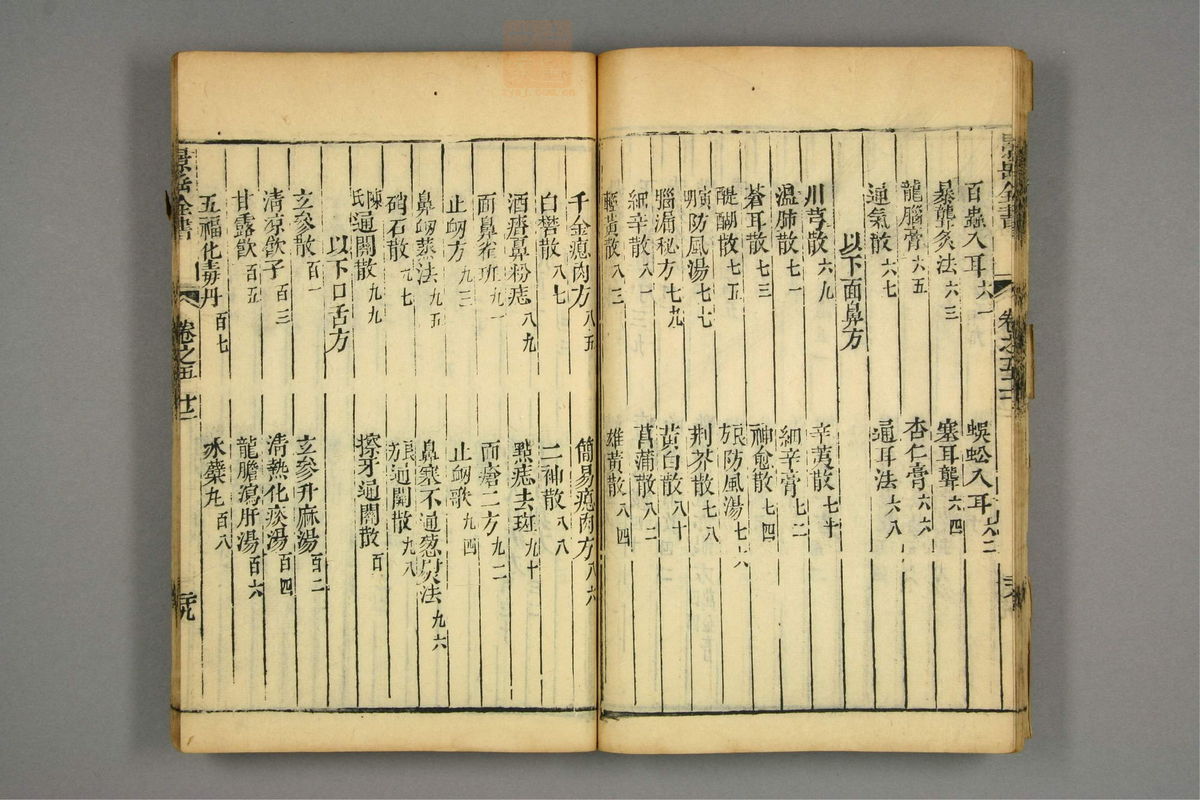 景岳全書
百蟲入耳六一 蜈蚣入耳六二
暴聾灸法六三 塞耳聾六四
龍腦膏六五 杏仁膏六六
通氣散六七 通耳法六八
以下面鼻方
川芎散六九 辛荑散七十
溫肺散七一 細辛膏七二
蒼耳散七三 神愈散七四
醍醐散七五 良方防風湯七六
宣明防風湯七七 荆芥散七八
腦漏秘方七九 黃白散八十
細辛散八一 菖蒲散八二
輕黃散八三 雄黃散八四
千金瘜肉方八五 簡易瘜肉方八六
白礬散八七 二神散八八
酒㾴鼻粉痣八九 點痣去斑九十
面鼻雀斑九一 面瘡二方九二
止衂方九三 止衂歌九四
鼻衂蒸法九五 鼻塞不通葱熨法九六
硝石散九七 良方通關散九八
陳氏通關散九九 擦牙通關散百
以下口舌方
玄參散百一 玄參升麻湯百二
清凉飲子百三 清熱化痰湯百四
甘露飲百五 龍膽瀉肝湯百六
五福化毒丹百七 氷蘗丸百八
景岳全書 卷之五